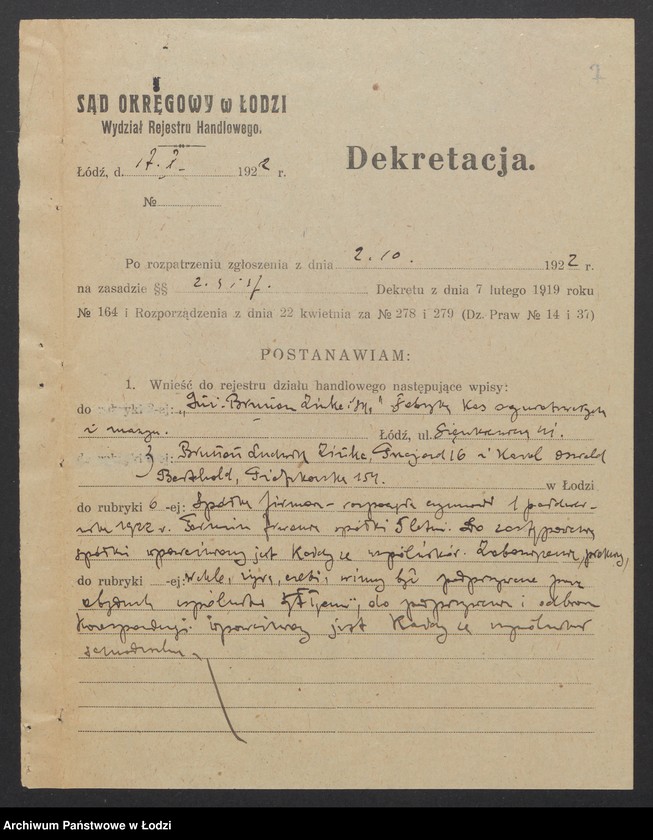 7
SĄD OKRĘGOWY w ŁODZI
Wydział Rejestru Handlowego.
Łódź, d. 17.X. 1922 r.
Dekretacja.
№
Po rozpatrzeniu zgłoszenia z dnia 2.10. 1922 r.
na zasadzie §§ 2. Dekretu z dnia 7 lutego 1919 roku
№ 164 i Rozporządzenia z dnia 22 kwietnia za № 278 i 279 (Dz. Praw № 14 i 37)
POSTANAWIAM:
1. Wnieść do rejestru działu handlowego następujące wpisy:
do rubryki -ej: „Inż. Brunon Zinke i S-ka" Fabryka Kas ogniotrwałych
i maszyn. Łódź, ul. Sienkiewicza
3) Brunon Ludwik Zinke, 16 i Karol Oswald
Berthold, Piotrkowska 154. w Łodzi
do rubryki 6 -ej: Spółka firmowa - rozpoczęła czynności 1 październ-
nika 1922 r. Termin trwania spółki 5 letni. Do zastępowania
spółki upoważniony jest Każdy ze wspólników. Zobowiązania, prokury,
do rubryki -ej: weksle, żyra, czeki, winny być podpisywane przez
obydwóch wspólników łącznie, do podpisywania i odbioru
Korespondencji upoważniony jest Każdy ze wspólników
samodzielnie.
Archiwum Państwowe w Łodzi